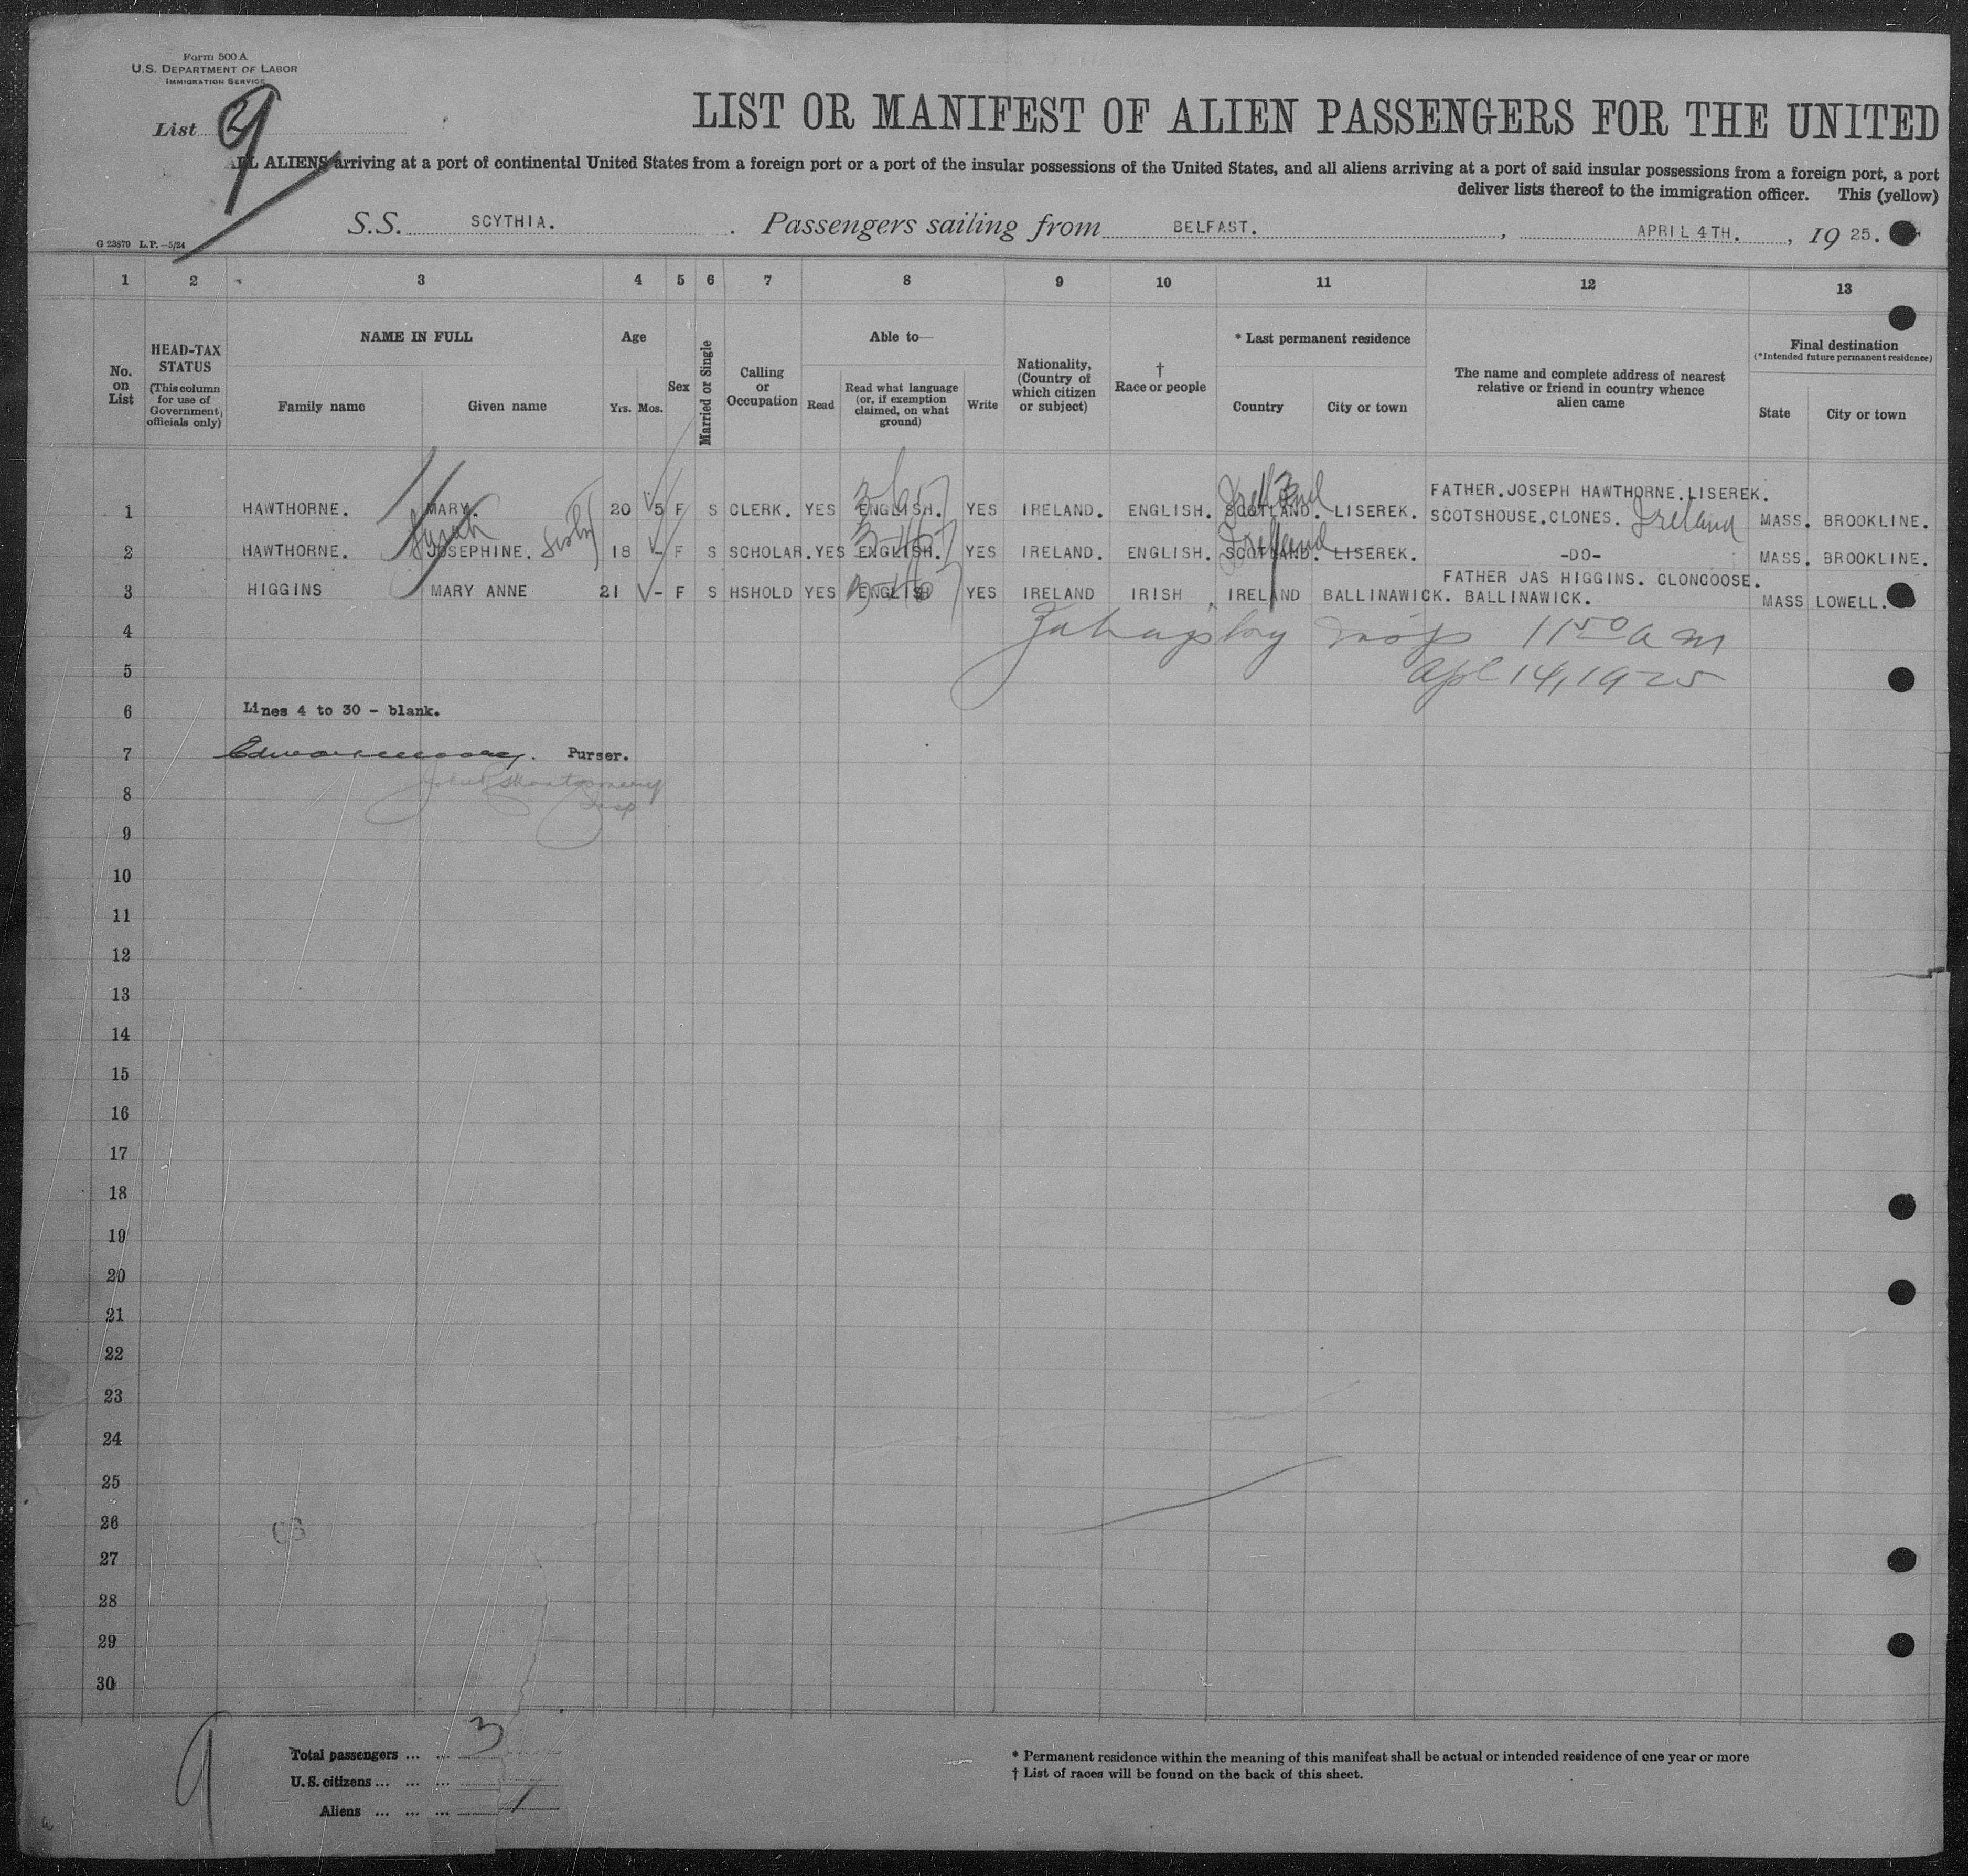 Form 500 A
U.S. DEPARTMENT OF LABOR
IMMIGRATION SERVICE
List 9
LIST OR MANIFEST OF ALIEN PASSENGERS FOR THE UNITED
ALL ALIENS arriving at a port of continental United States from a foreign port or a port of the insular possessions of the United States, and all aliens arriving at a port of said insular possessions from a foreign port, a port
deliver lists thereof to the immigration officer. This (yellow)
S.S. SCYTHIA. . Passengers sailing from BELFAST. , APRIL 4TH. , 19 25.
G 23879 L.P.—5/24
1 2 3 4 5 6 7 8 9 10 11 12 13
No. on List
HEAD-TAX STATUS (This column for use of Government officials only)
NAME IN FULL
Family name Given name
Age
Yrs. Mos.
Sex
Married or Single
Calling or Occupation
Able to—
Read
Read what language (or, if exemption claimed, on what ground)
Write
Nationality, (Country of which citizen or subject)
† Race or people
* Last permanent residence
Country City or town
The name and complete address of nearest relative or friend in country whence alien came
Final destination
(*Intended future permanent residence)
State City or town
1 HAWTHORNE. MARY. 20 5 F S CLERK. YES ENGLISH. YES IRELAND. ENGLISH. SCOTLAND. Ireland LISEREK. FATHER.JOSEPH HAWTHORNE.LISEREK. SCOTSHOUSE.CLONES. Ireland MASS. BROOKLINE.
2 HAWTHORNE. Sarah JOSEPHINE. 18 - F S SCHOLAR. YES ENGLISH. YES IRELAND. ENGLISH. SCOTLAND. Ireland LISEREK. -DO- MASS. BROOKLINE.
3 HIGGINS MARY ANNE 21 - F S HSHOLD YES ENGLISH YES IRELAND IRISH IRELAND BALLINAWICK. FATHER JAS HIGGINS. CLONCOOSE. BALLINAWICK. MASS LOWELL.
4 Insp 11 50 a m
5 Apl 14, 1925
6 Lines 4 to 30 - blank.
7 Purser.
8 Montgomery
Insp
9
10
11
12
13
14
15
16
17
18
19
20
21
22
23
24
25
26 63
27
28
29
30
9
Total passengers ... ... 3
U.S. citizens ... ... ...
Aliens ... ... ...
* Permanent residence within the meaning of this manifest shall be actual or intended residence of one year or more
† List of races will be found on the back of this sheet.